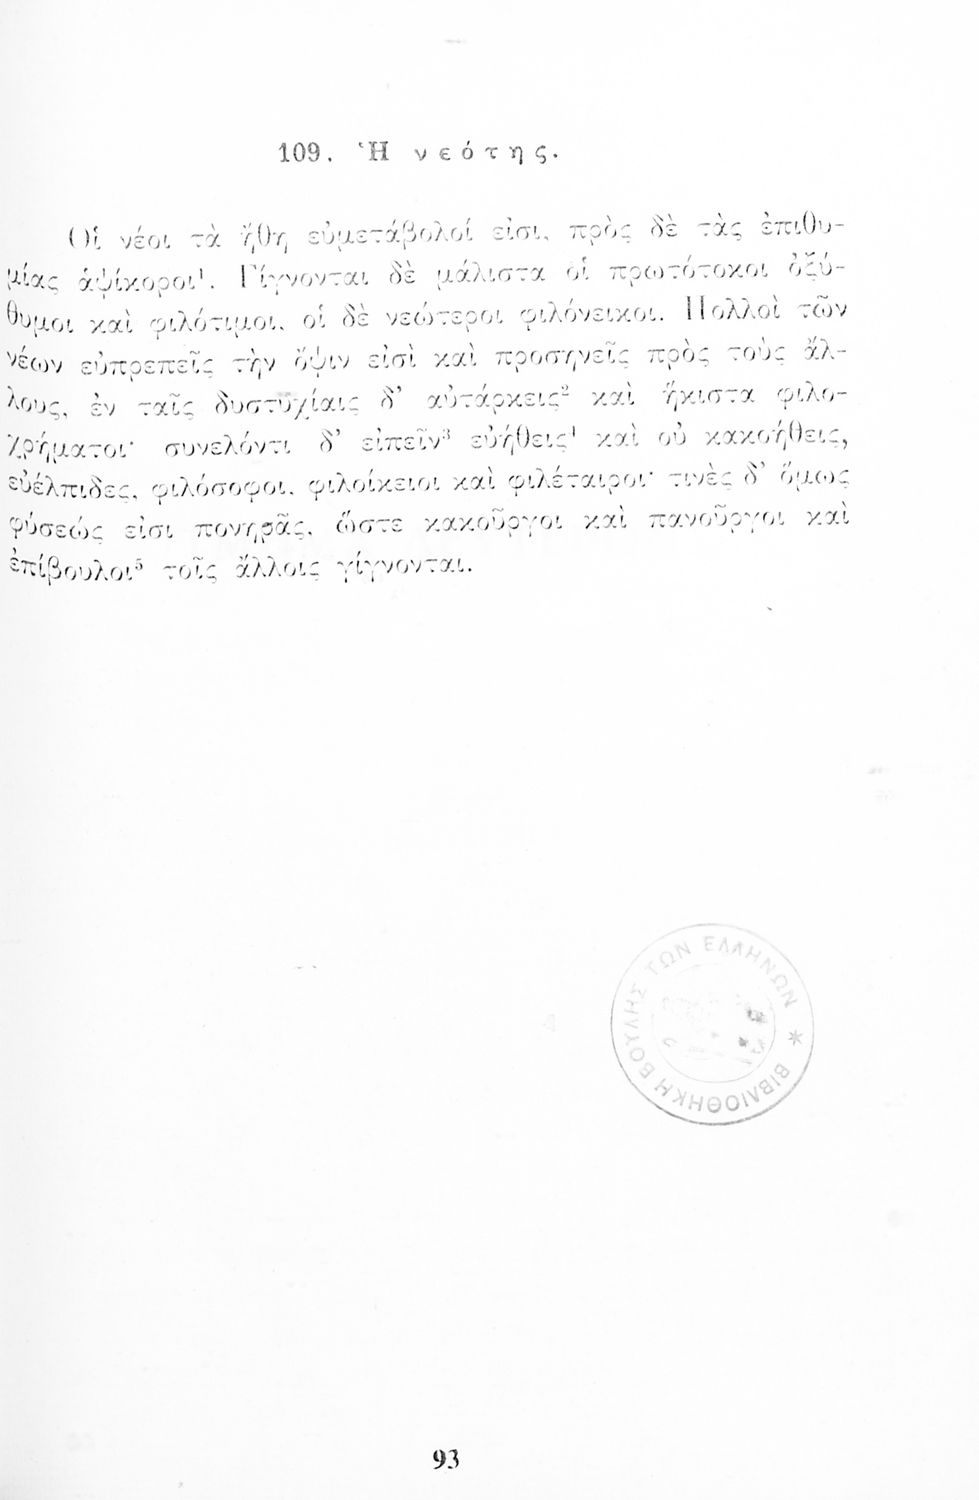 109. Ἡ νεότης.
Οἱ νέοι τὰ ἤθη εὐμετάβολοί εἰσι, πρὸς δὲ τὰς ἐπιθυ-
μίας ἁψίκοροι¹. Γίγνονται δὲ μάλιστα οἱ πρωτότοκοι ὀξύ-
θυμοι καὶ φιλότιμοι, οἱ δὲ νεώτεροι φιλόνεικοι. Πολλοὶ τῶν
νέων εὐπρεπεῖς τὴν ὄψιν εἰσὶ καὶ προσηνεῖς πρὸς τοὺς ἄλ-
λους, ἐν ταῖς δυστυχίαις δ’ αὐτάρκεις² καὶ ἥκιστα φιλο-
χρήματοι· συνελόντι δ’ εἰπεῖν³ εὐήθεις⁴ καὶ οὐ κακοήθεις,
εὐέλπιδες, φιλόσοφοι, φιλοίκειοι καὶ φιλέταιροι· τινὲς δ’ ὅμως
φύσεώς εἰσι πονηρᾶς, ὥστε κακοῦργοι καὶ πανοῦργοι καὶ
ἐπίβουλοι⁵ τοῖς ἄλλοις γίγνονται.
ΒΙΒΛΙΟΘΗΚΗ ΒΟΥΛΗΣ ΤΩΝ ΕΛΛΗΝΩΝ *
93